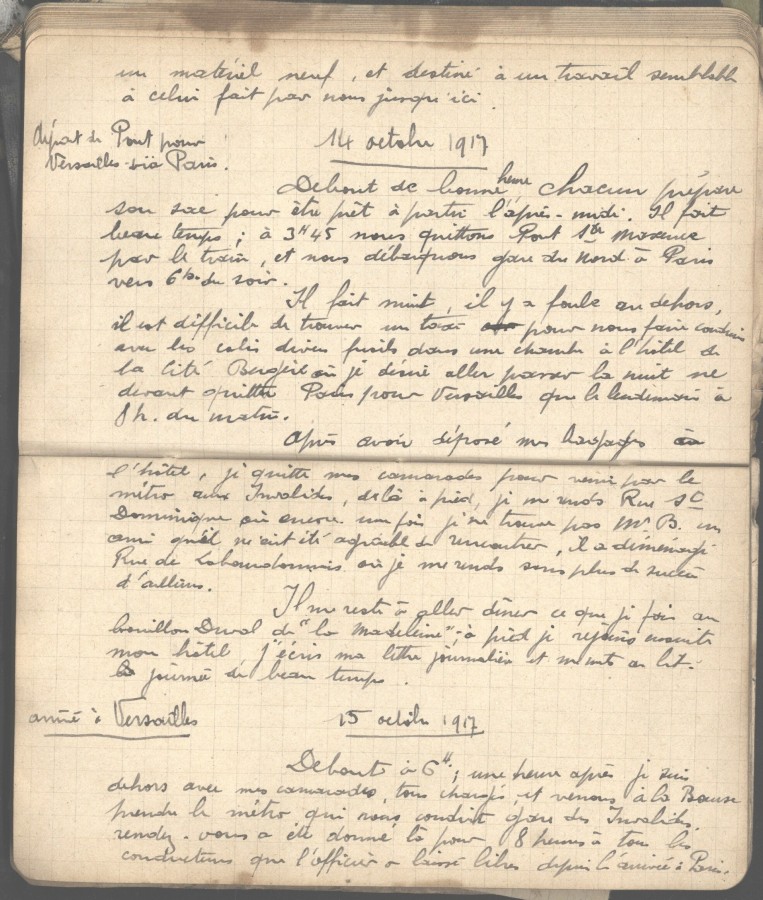 un matériel neuf, et destiné à un travail semblable
à celui fait par nous jusqu'ici.
départ de Pont pour
Versailles via Paris.
14 octobre 1917
Debout de bonne heure chacun prépare
son sac pour être prêt à partir l'après-midi. Il fait
beau temps; à 3H45 nous quittons Pont Ste Maxence
par le train, et nous débarquons gare du Nord à Paris
vers 6h. du soir.
Il fait nuit, il y a foule au dehors,
il est difficile de trouver un taxi pour nous faire conduire
avec les colis divers fusils dans une chambre à l'hôtel de
la Cité Bergère où je désire aller passer la nuit ne
devant quitter Paris pour Versailles que le lendemain à
8h. du matin.
Après avoir déposé mes bagages à
l'hôtel, je quitte mes camarades pour venir par le
métro aux Invalides, de là à pied, je me rends Rue St
Dominique où encore une fois je ne trouve pas Mr B. un
ami qu'il m'eût été agréable de rencontrer, il a déménagé
Rue de Labourdonnais où je me rends sans plus de succès
d'ailleurs.
Il me reste à aller dîner ce que je fais au
bouillon Duval de "la Madeleine"; à pied je rejoins ensuite
mon hôtel j'écris ma lettre journalière et me mets au lit.
journée de beau temps.
arrivé à Versailles
15 octobre 1917
Debout à 6H; une heure après je suis
dehors avec mes camarades, tous chargés, et venons à la Bourse
prendre le métro qui nous conduit gare des Invalides,
rendez-vous a été donné là pour 8 heures à tous les
conducteurs que l'officier a laissé libres depuis l'arrivée à Paris.